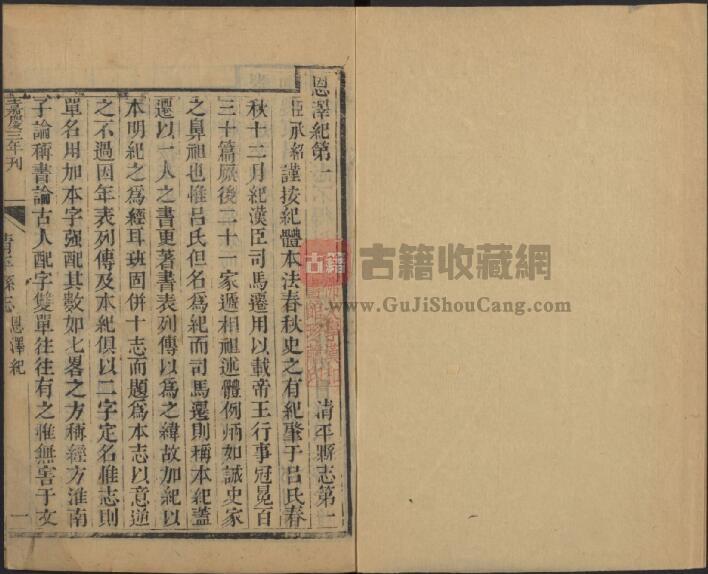 恩澤紀第一　清平縣志第二
臣承紹謹按紀體本法春秋史之有紀肇于呂氏春
秋十二月紀漢臣司馬遷用以載帝王行事冠冕百
三十篇厥後二十一家遞相祖述體例炳如誠史家
之鼻祖也惟呂氏但名爲紀而司馬遷則稱本紀蓋
遷以一人之書更著書表列傳以爲之緯故加紀以
本明紀之爲經耳班固併十志而題爲本志以意逆
之不過因年表列傳及本紀俱以二字定名惟志則
單名用加本字强配其數如七畧之方稱經方淮南
子論稱書論古人配字雙單往往有之雖無害于文
嘉慶三年刊
清平縣志
恩澤紀
一
古籍
古籍收藏網
www.GuJiShouCang.com